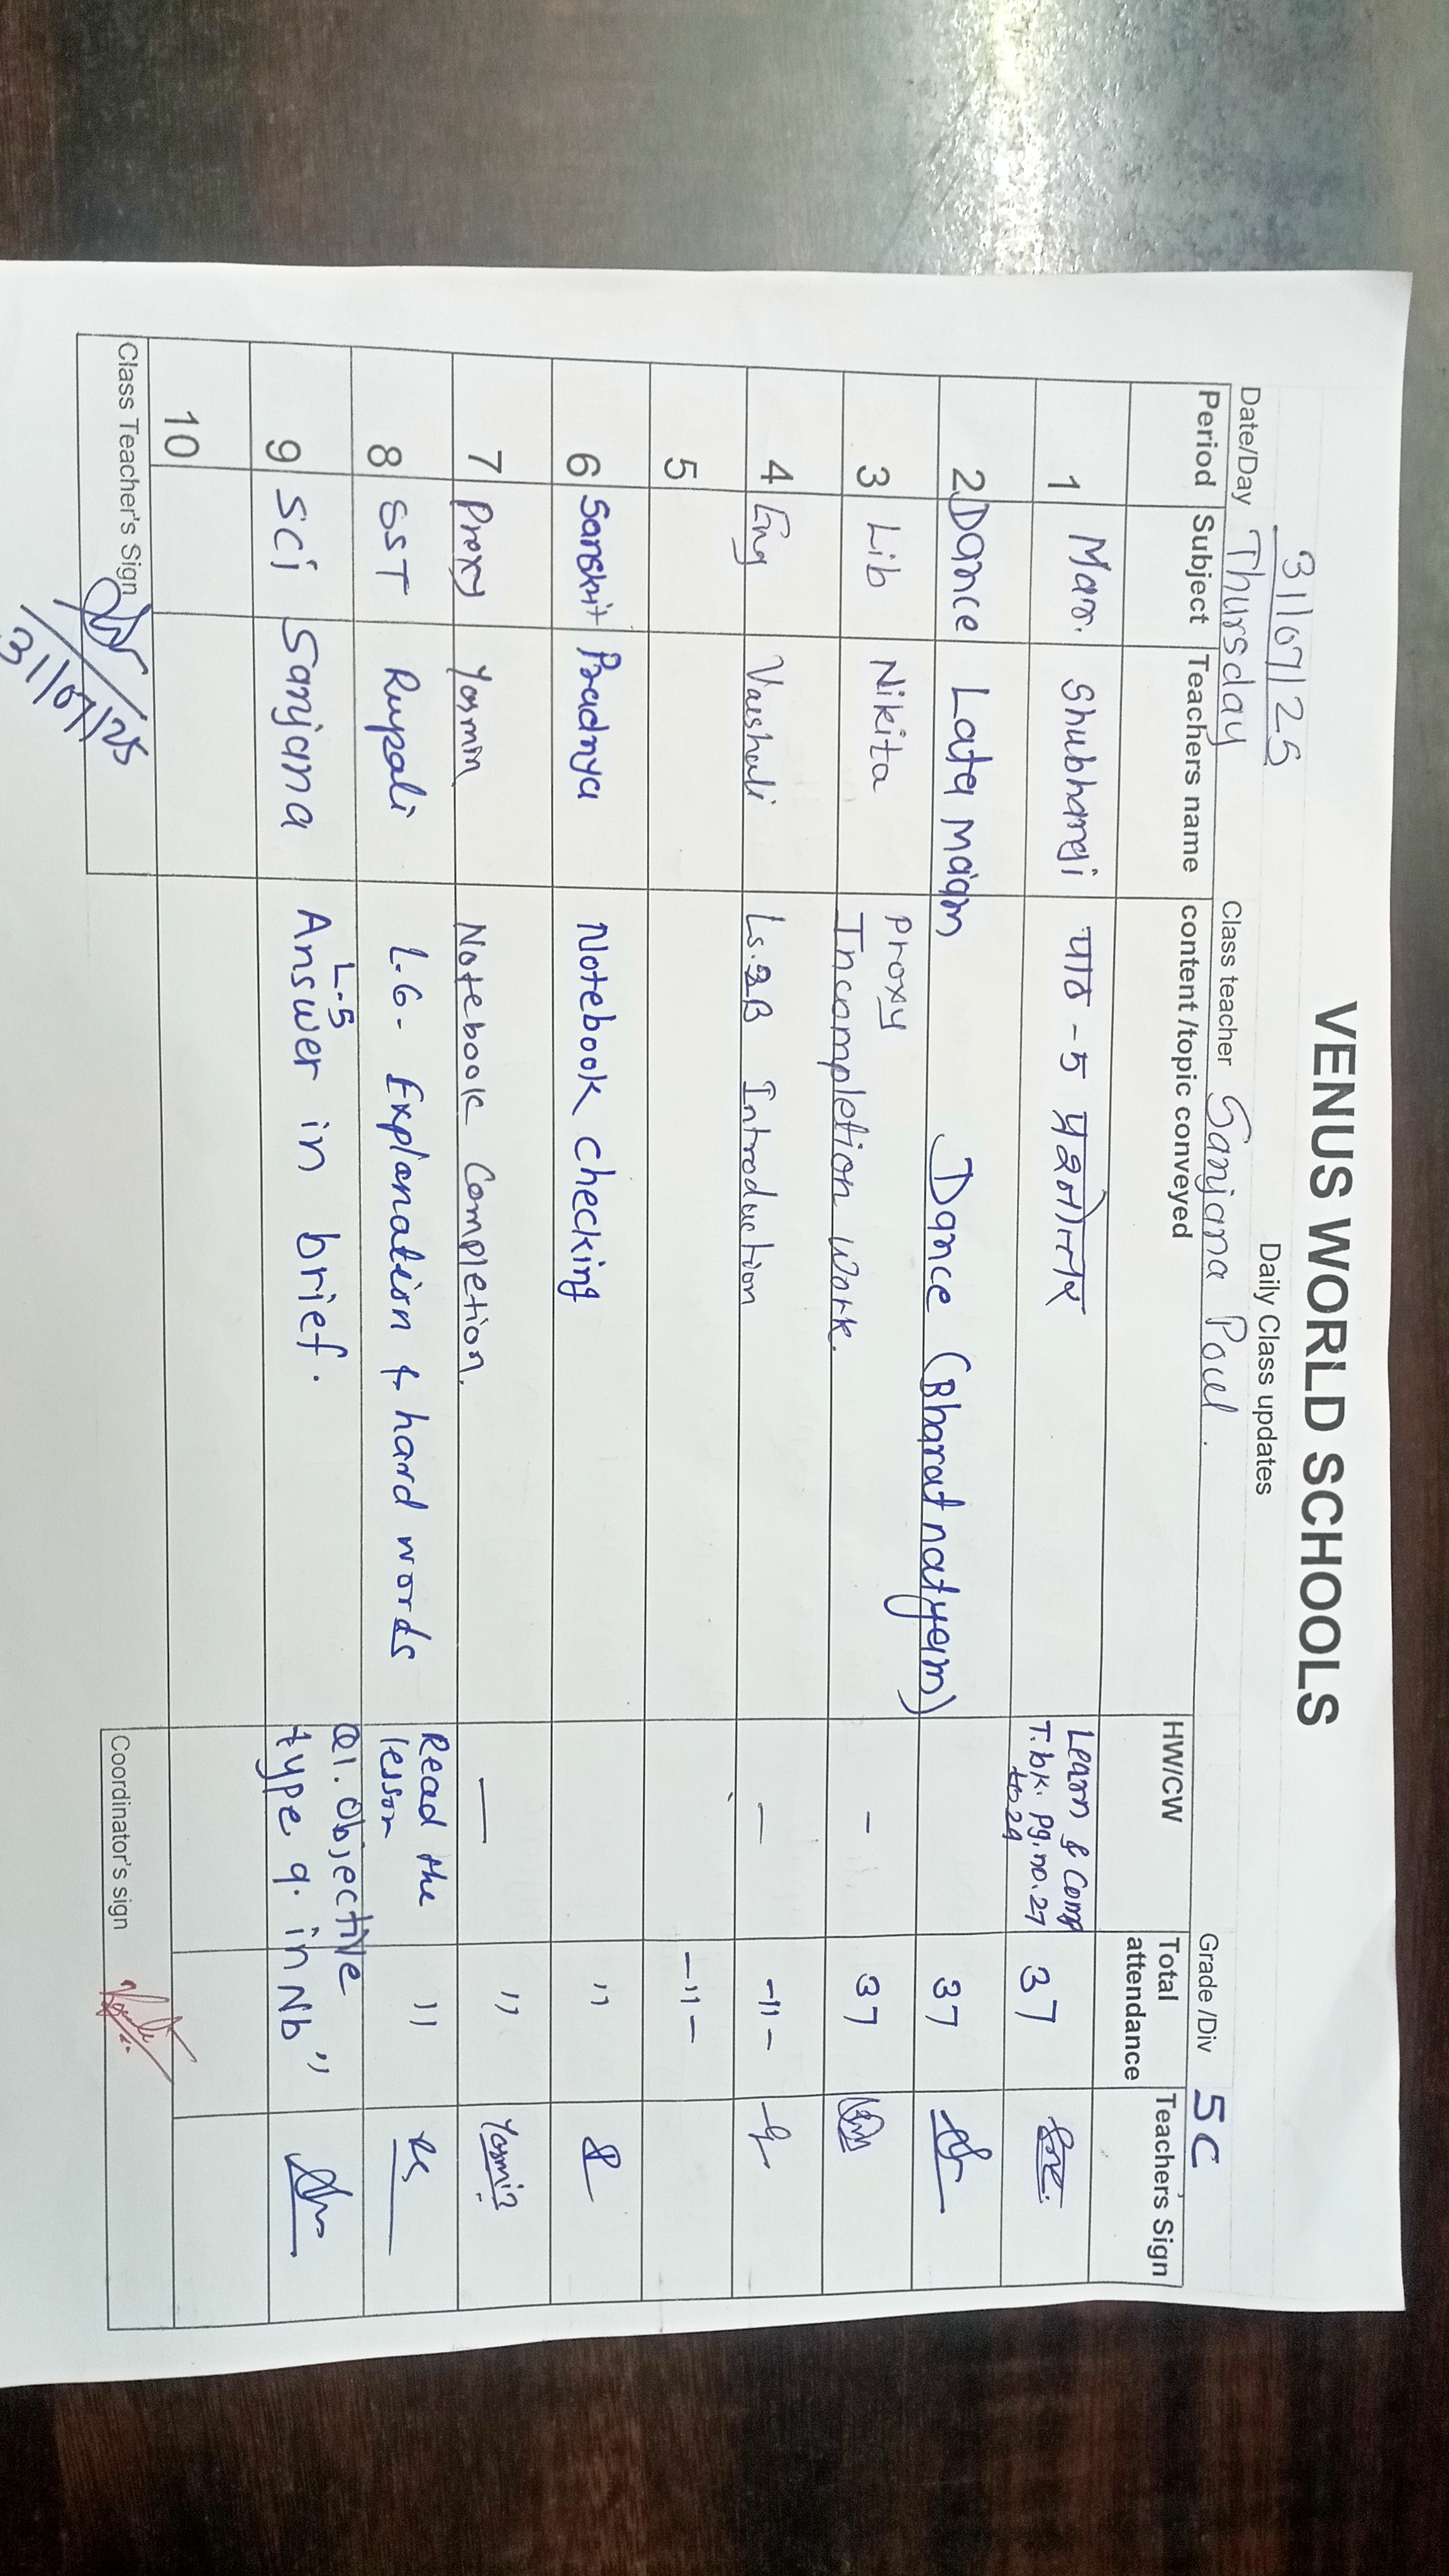 VENUS WORLD SCHOOLS
31/07/25
Daily Class updates
Date/Day Thursday Class teacher Sanjana Paul. Grade /Div 5C
Period Subject Teachers name content /topic conveyed HW/CW Total attendance Teachers' Sign
1 Mar. Shubhangi पाठ - 5 प्रश्नोत्तर Learn & Comp 37
T.bk. pg.no.27
to 29
2 Dance Lata Ma'am Dance (Bharatnatyam) 37
3 Lib Nikita Proxy - 37
Incompletion work.
4 Eng Vaishali Ls. B Introduction — -11-
5 -11-
6 Sanskrit Pradnya Notebook checking "
7 Proxy Yasmin Notebook Completion. — " Yasmin
8 SST Rupali L.6- Explanation & hard words Read the lesson "
9 Sci Sanjana L.5 Answer in brief. Q1. Objective type q. in Nb "
10
Class Teacher's Sign 31/07/25 Coordinator's sign